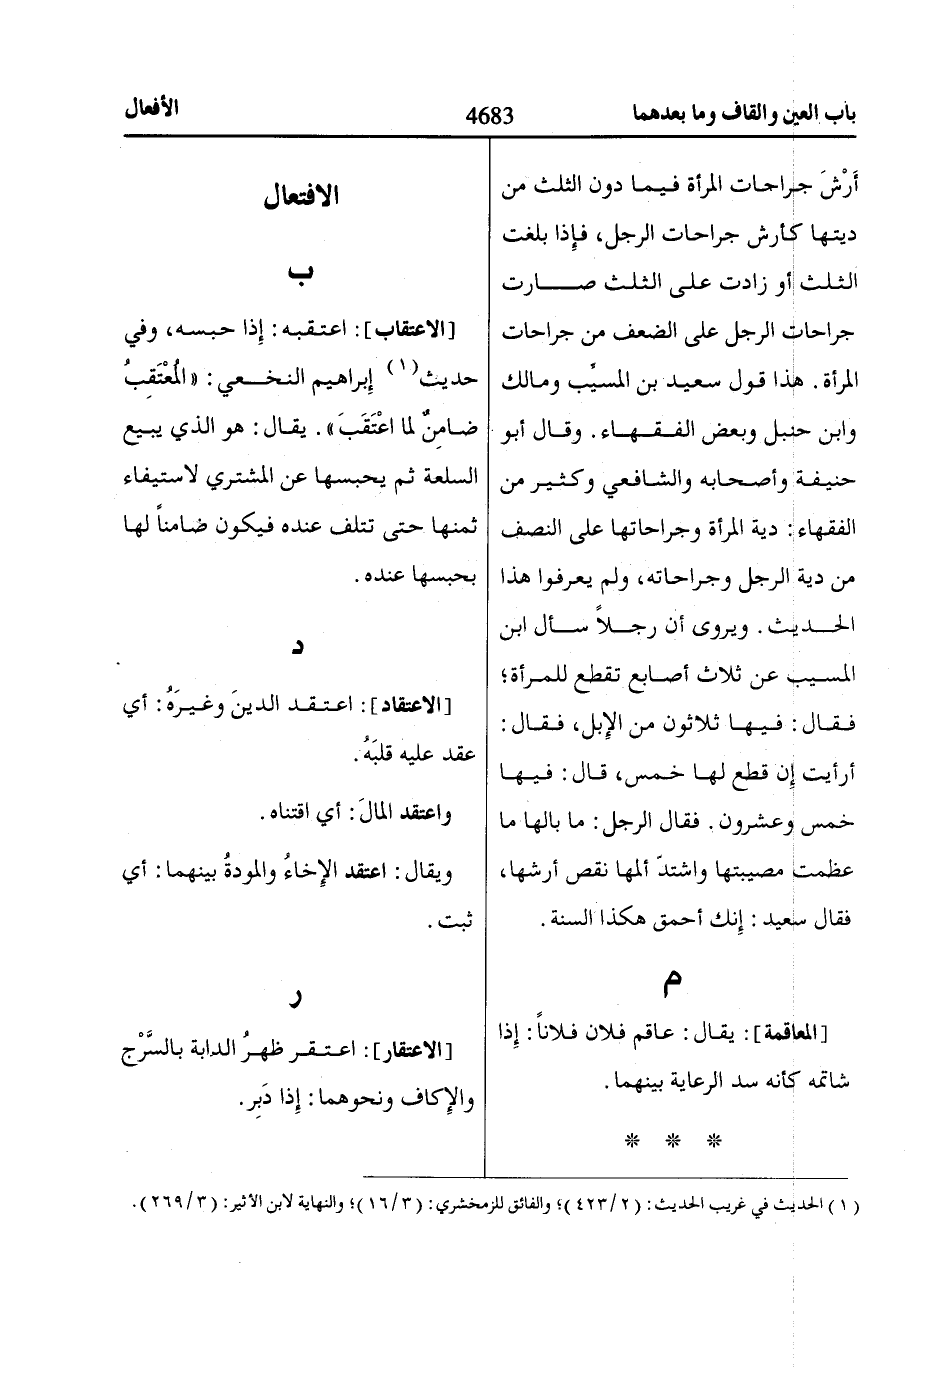 باب العين والقاف وما بعدهما
4683
الأفعال
أَرْشَ جراحات المرأة فيما دون الثلث من
ديتها كأرش جراحات الرجل، فإذا بلغت
الثلث أو زادت على الثلث صارت
جراحات الرجل على الضعف من جراحات
المرأة. هذا قول سعيد بن المسيَّب ومالك
وابن حنبل وبعض الفقهاء. وقال أبو
حنيفة وأصحابه والشافعي وكثير من
الفقهاء: دية المرأة وجراحاتها على النصف
من دية الرجل وجراحاته، ولم يعرفوا هذا
الحديث. ويروى أن رجلاً سأل ابن
المسيب عن ثلاث أصابع تقطع للمرأة؛
فقال: فيها ثلاثون من الإبل، فقال:
أرأيت إن قطع لها خمس، قال: فيها
خمس وعشرون. فقال الرجل: ما بالها ما
عظمت مصيبتها واشتدّ ألمها نقص أرشها،
فقال سعيد: إنك أحمق هكذا السنة.
م
[المعاقمة]: يقال: عاقم فلان فلاناً: إذا
شاتمه كأنه سد الرعاية بينهما.
* * *
الافتعال
ب
[الاعتقاب]: اعتقبه: إذا حبسه، وفي
حديث(١) إبراهيم النخعي: «المُعْتَقِبُ
ضامنٌ لما اعْتَقَبَ». يقال: هو الذي يبيع
السلعة ثم يحبسها عن المشتري لاستيفاء
ثمنها حتى تتلف عنده فيكون ضامناً لها
بحبسها عنده.
د
[الاعتقاد]: اعتقد الدينَ وغيرَهُ: أي
عقد عليه قلبَهُ.
واعتقد المالَ: أي اقتناه.
ويقال: اعتقد الإخاءُ والمودةُ بينهما: أي
ثبت.
ر
[الاعتقار]: اعتقر ظهرُ الدابة بالسَّرْج
والإكاف ونحوهما: إذا دَبِر.
(١) الحديث في غريب الحديث: (٤٢٣/٢)؛ والفائق للزمخشري: (١٦/٣)؛ والنهاية لابن الأثير: (٢٦٩/٣).